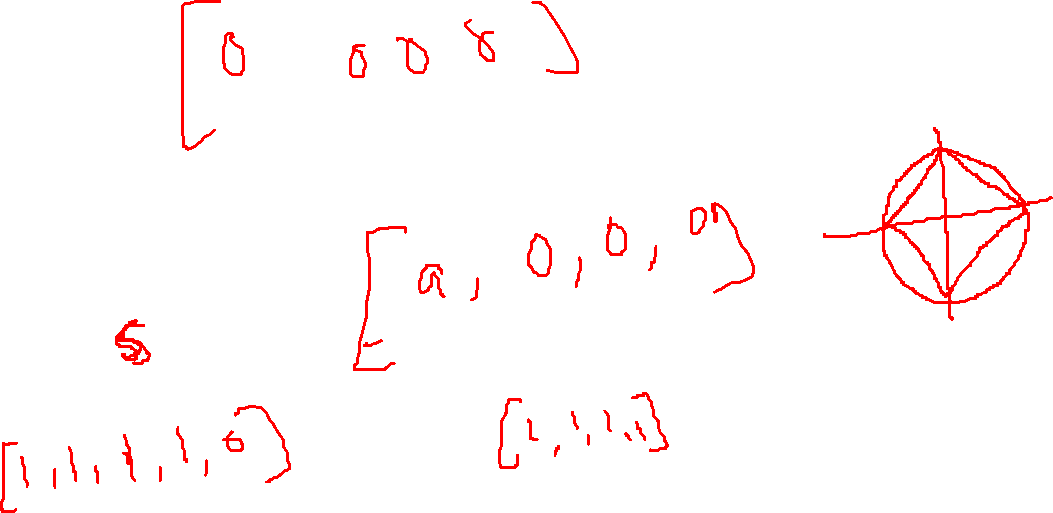 [0 0 0 8]
[a, 0, 0, 0]
5
[1, 1, 1, 1, 0]
[1, 1, 1, 1]